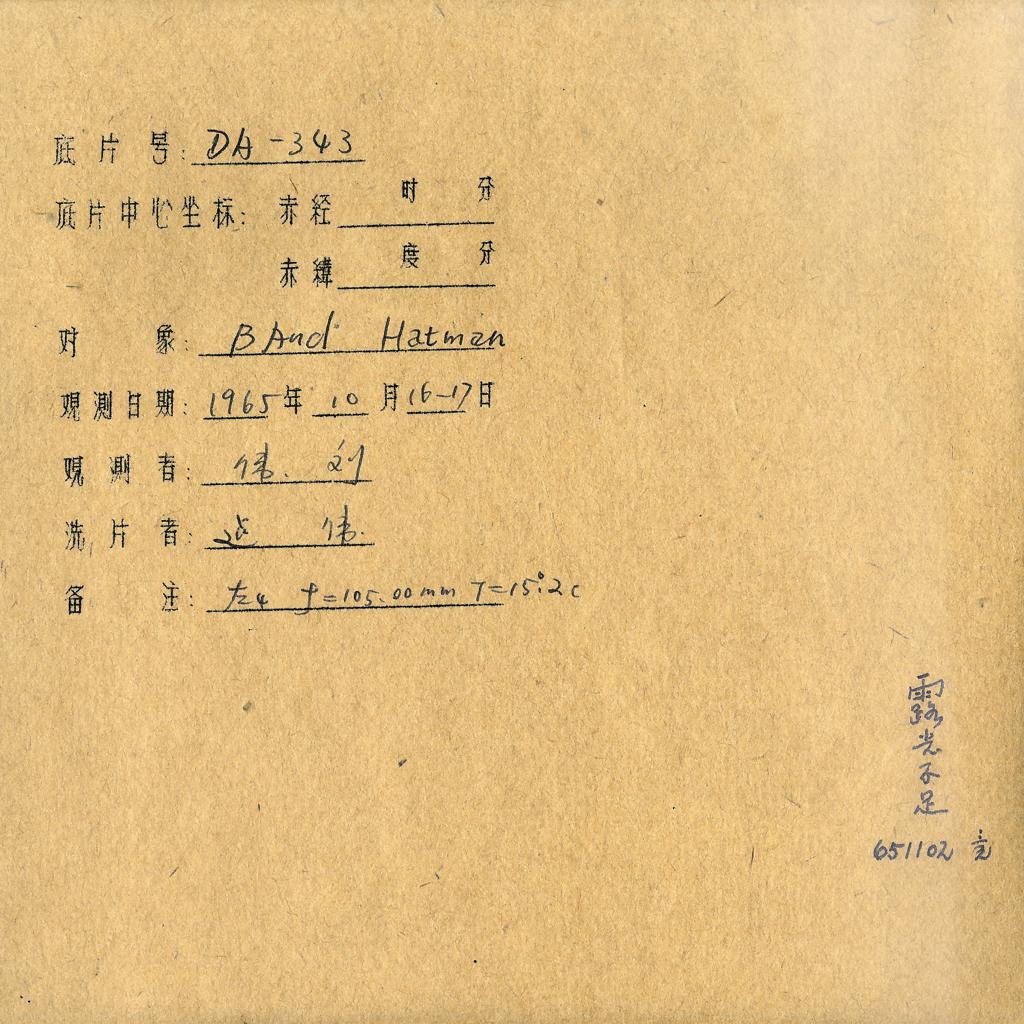 底片号: DA-343
时 分
底片中心坐标: 赤经
度 分
赤緯
对 象: B And Hatman
观测日期: 1965年 10 月16-17日
观测者: 伟. 刘
洗片者: 伟.
备 注: 左4 f=105.00mm T=15°.2c
露光不足
651102